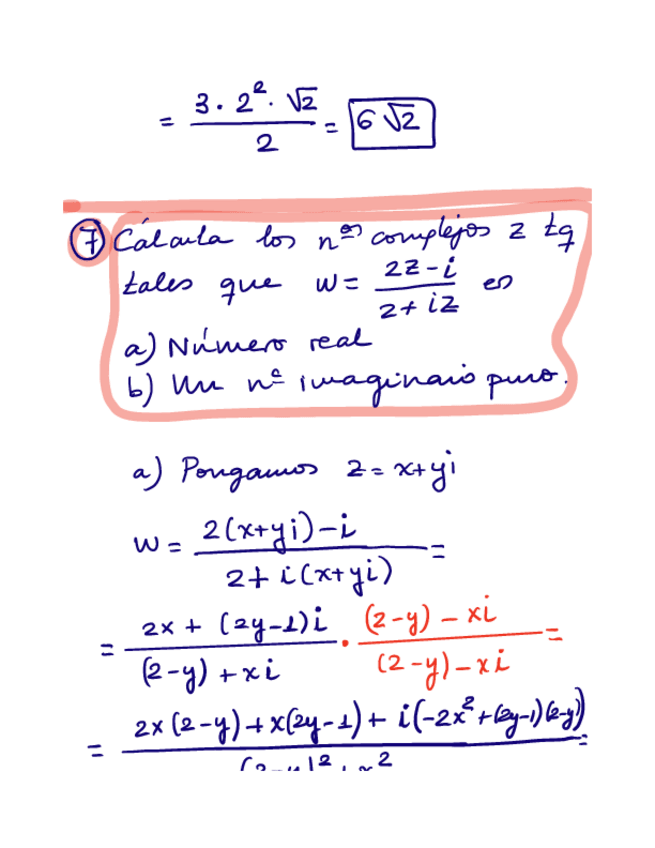 = 3 · 2² · √2 / 2 = 6√2
7 Calcula los nºs complejos z tq
tales que w = 2z - i / 2 + iz es
a) Número real
b) Un nº imaginario puro.
a) Pongamos z = x+yi
w = 2(x+yi) - i / 2 + i(x+yi) =
= 2x + (2y-1)i / (2-y) + xi · (2-y) - xi / (2-y) - xi =
= 2x(2-y) + x(2y-1) + i(-2x² + (2y-1)(2-y)) / (2-y)² + x² =